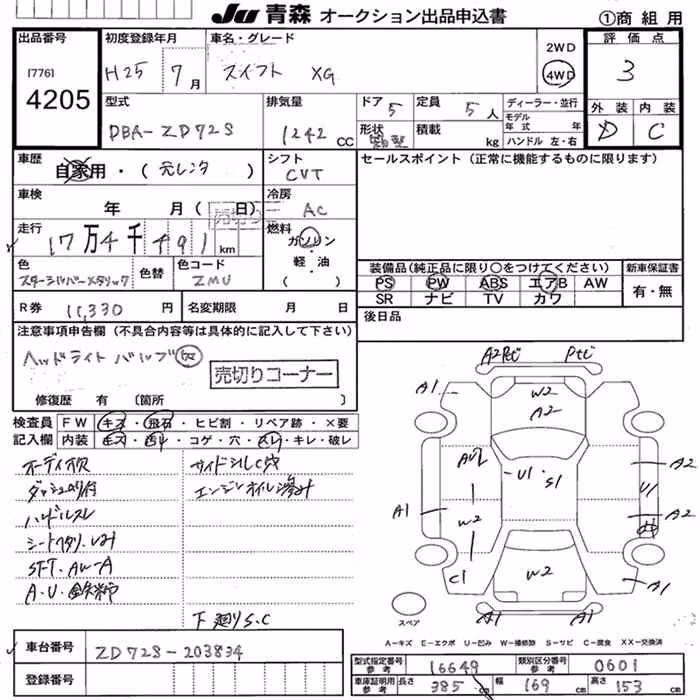 JU 青森 オークション出品申込書 ①商 組 用
出品番号 初度登録年月 車名・グレード 2WD 評 価 点
[776] H25 7月 スイフト XG 4WD 3
4205 型式 排気量 ドア 5 定員 5人 ディーラー・並行 外 装 内 装
DBA-ZD72S 1242 CC 形状 積載 kg モデル年式 年 ハンドル 左・右 D C
車歴 自家用・(元レンタ) シフト CVT セールスポイント(正常に機能するものに限ります)
車検 年 月(売切り 日) 冷房 AC
走行 17万4千491 km 燃料 ガソリン
軽・油
( )
色 スターシルバーメタリック 色替 色コード ZMU 装備品(純正品に限り○をつけてください) 新車保証書
PS PW ABS エアB AW 有・無
SR ナビ TV カワ
R券 11,330 円 名変期限 月 日 後日品
注意事項申告欄(不具合内容等は具体的に記入して下さい)
ヘッドライト バルブ
売切りコーナー
修復歴 有 〔箇所 〕
検査員 FW キズ・飛石・ヒビ割・リペア跡・×要
記入欄 内装 キズ・汚レ・コゲ・穴・スレ・キレ・破レ
オーディオ欠 サイドシルC穴
ダッシュ 付 エンジンオイル滲み
ハンドルスレ
シート
SFT.AW-A
A.U.
下廻りS.C
A2 Pセ Pセ
A1 W2 A2
U1 S1 A2
A1 W2 U1 A2
C1 W2 A1
A1 A1
スペア
A-キズ E-エクボ U-凹み W-補修跡 S-サビ C-腐食 XX-交換済
車台番号 ZD72S-203834
登録番号
型式指定番号 参考 16649 類別区分番号 参考 0601
車庫証明用 参考 長さ 385 cm 幅 169 cm 高さ 153 cm